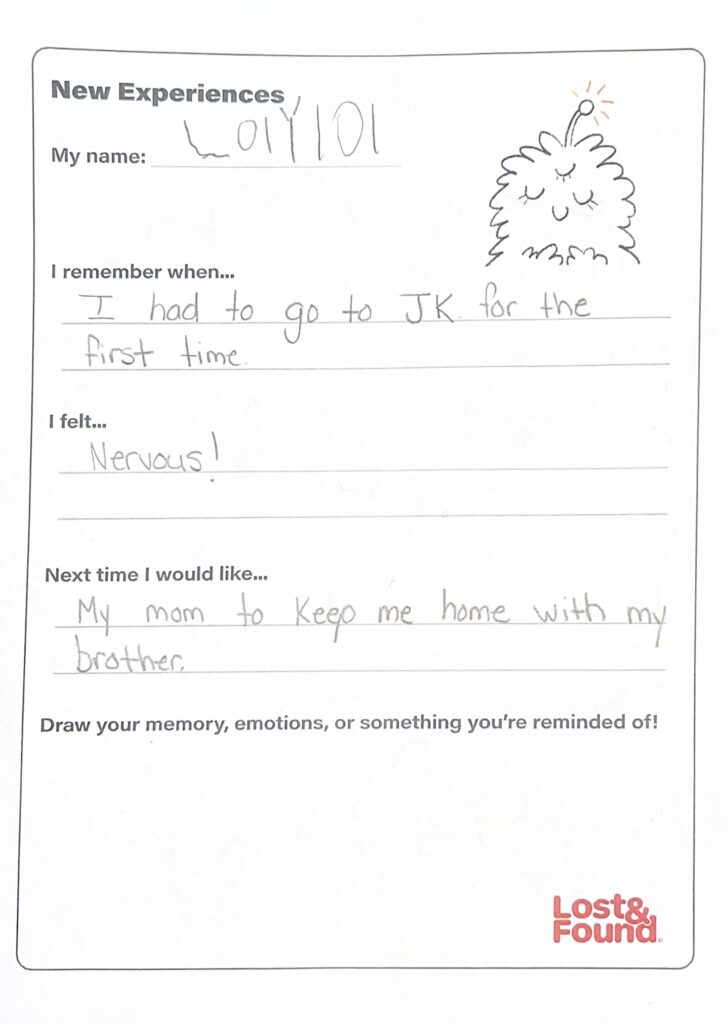 New Experiences
My name:
I remember when...
I had to go to JK for the
first time.
I felt...
Nervous!
Next time I would like...
My mom to keep me home with my
brother.
Draw your memory, emotions, or something you're reminded of!
Lost&
Found